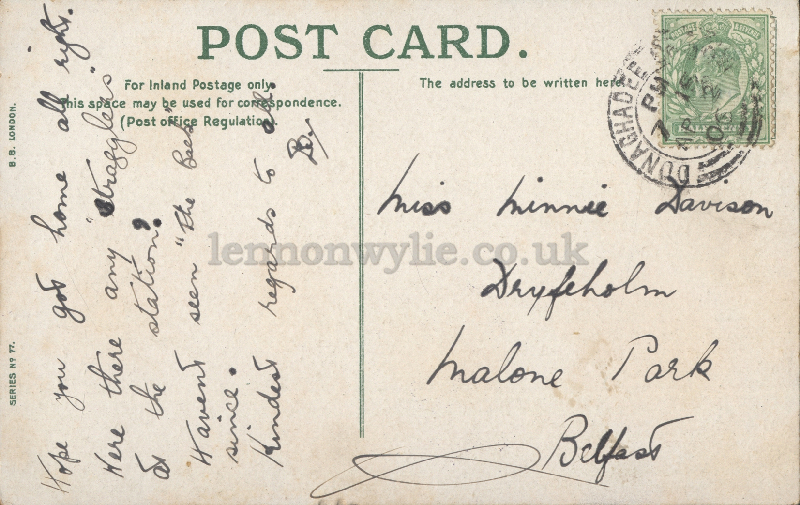 POST CARD.
For Inland Postage only.
This space may be used for correspondence.
(Post office Regulation).
The address to be written here
B.B. LONDON.
SERIES Nº 77.
Hope you got home all right.
Were there any "stragglers"
at the station?
Havent seen "the Bees"
since.
Kindest regards to all.
DONAGHADEE
7 PM
AP
06
Miss Minnie Davison
Dryfeholm
Malone Park
Belfast
lennonwylie.co.uk